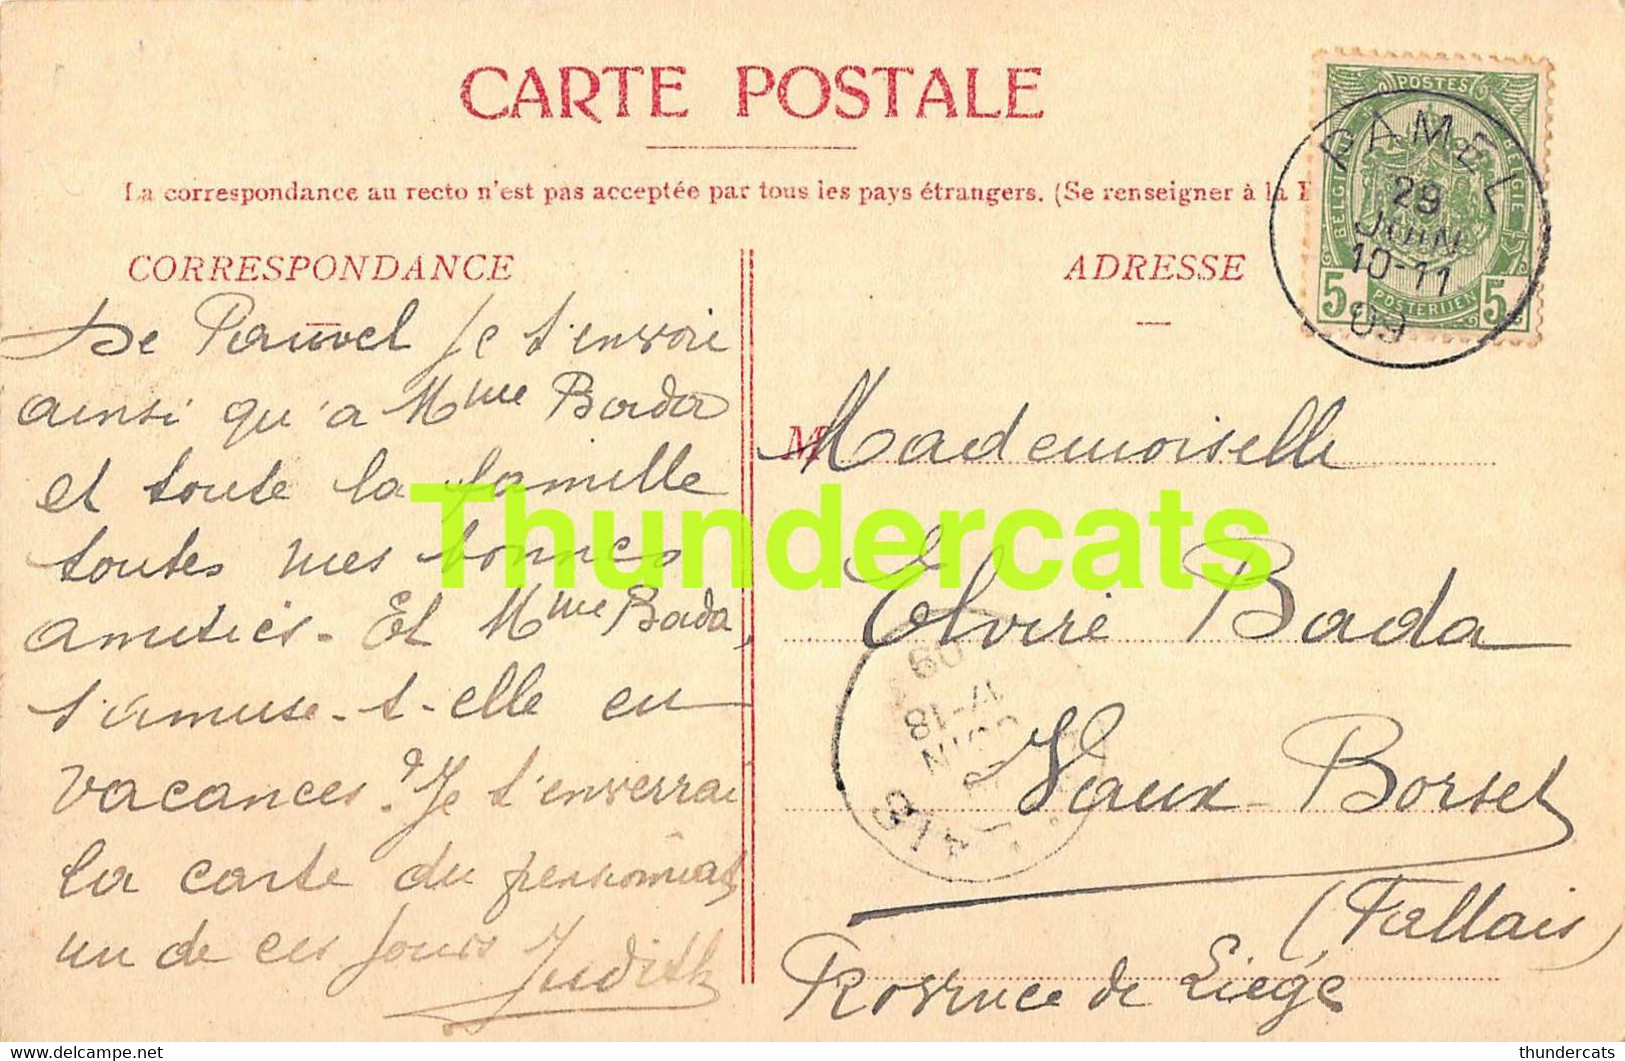 CARTE POSTALE
La correspondance au recto n'est pas acceptée par tous les pays étrangers. (Se renseigner à la
CORRESPONDANCE
De Pauvel je t'envoie
ainsi qu'a Mme Bada
et toute la famille
toutes mes bonnes
amitiés. Et Mme Bada,
s'amuse-t-elle en
vacances? Je t'enverrai
la carte du pensionnat
un de ces jours
Judith
ADRESSE
M
Mademoiselle
Elvire Bada
Vaux-Borset
(Fallais)
Province de Liége
POSTES
BELGIQUE
BELGIE
POSTERIJEN
5 5
PAMEL
29
JUIN
10-11
09
09
17-18
JUIN
Thundercats
thundercats